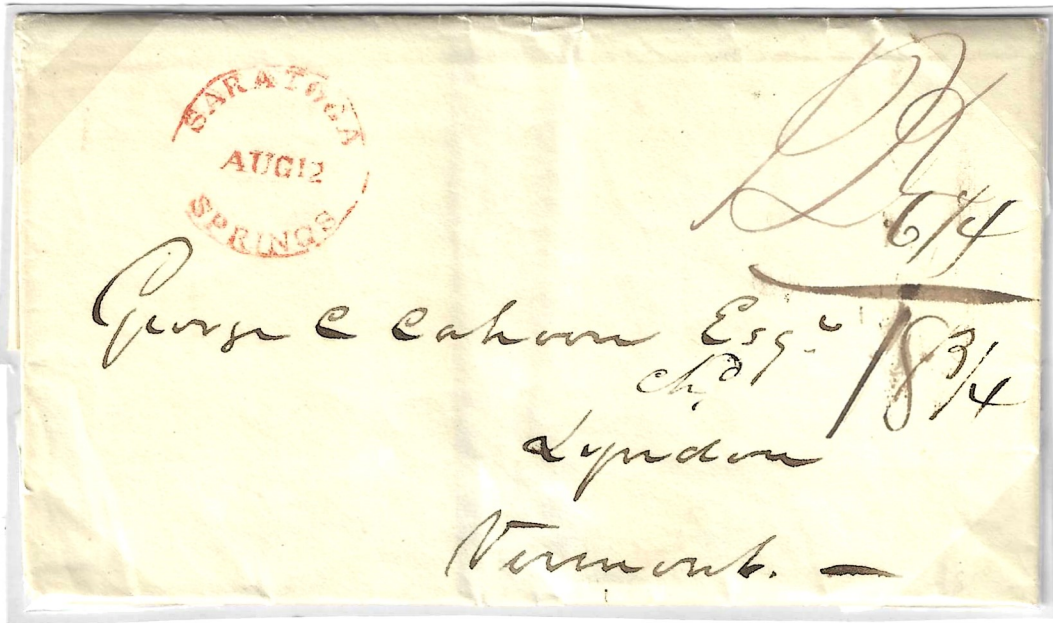 SARATOGA
AUG 12
SPRINGS
6/4
George C Cahoon Esqr
18 3/4
chd
Lyndon
Vermont.